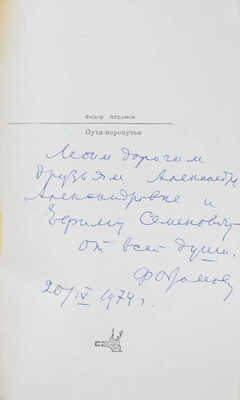 Федор Абрамов
Пути-перепутья
Моим дорогим
друзьям Александре
Александровне и
Ефиму Семеновичу –
от всей души.
ФАбрамов
20/IV 1974 г.